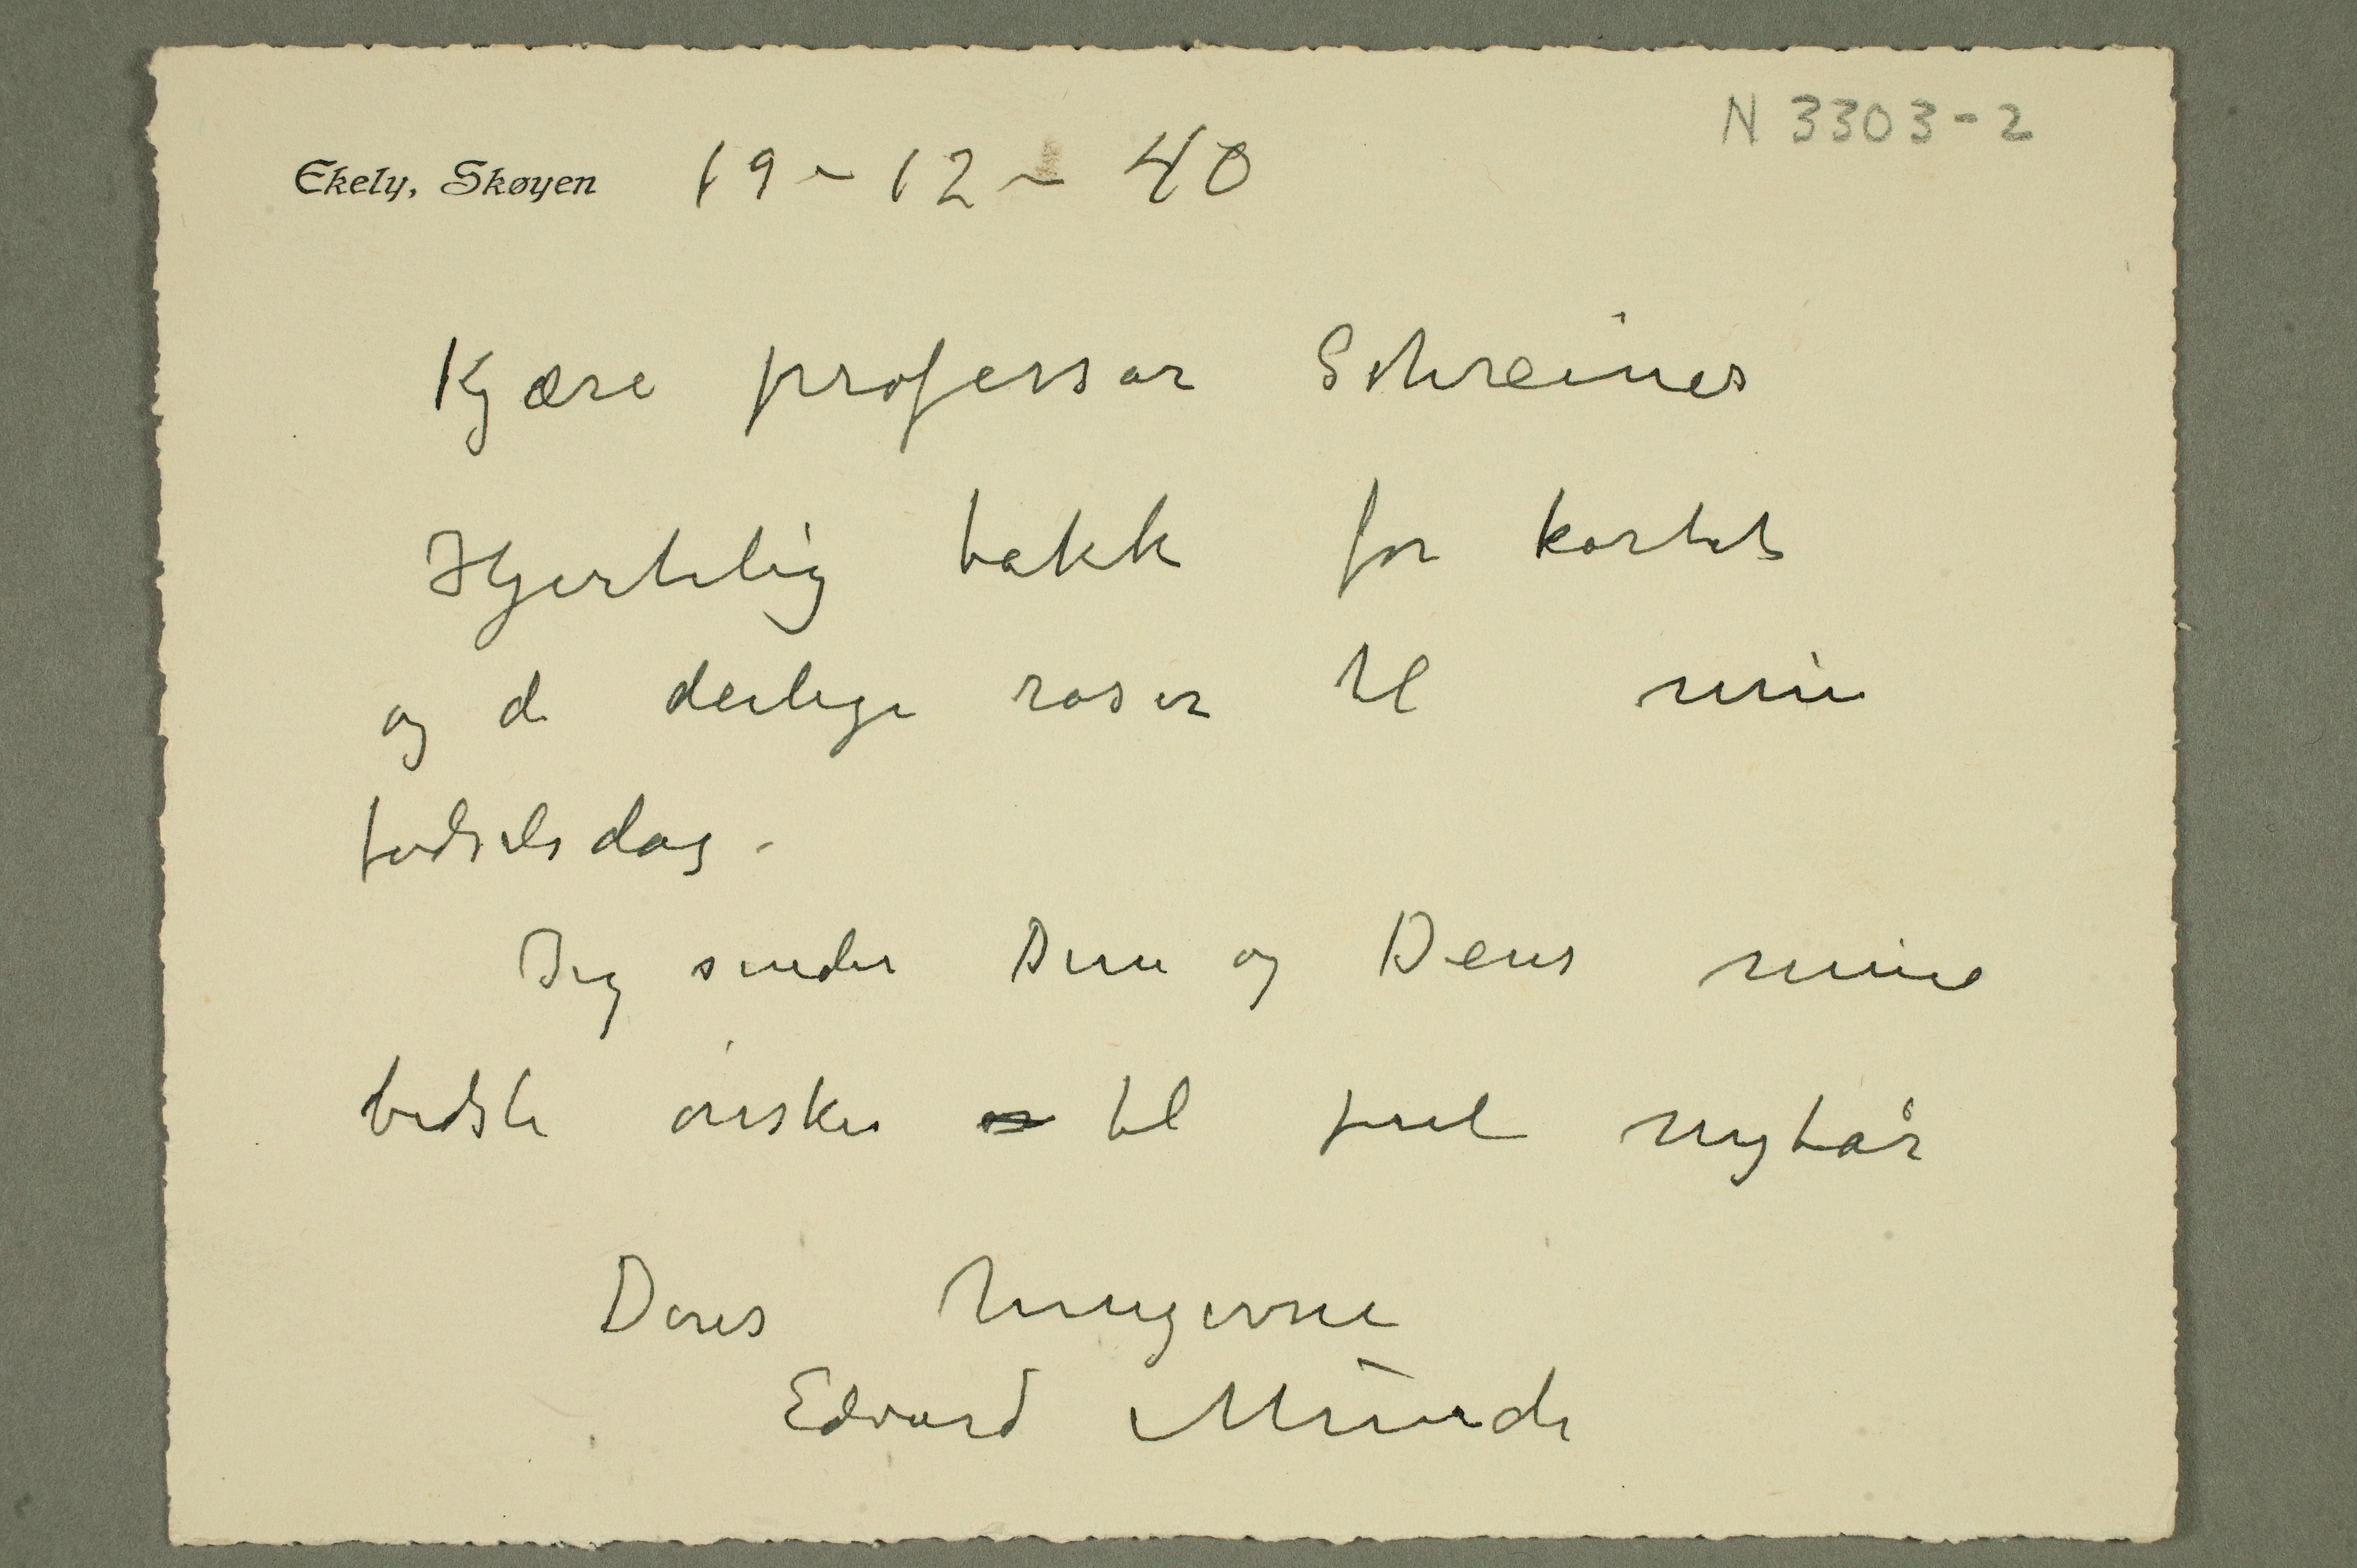 N 3303-2
Ekely, Skøyen 19-12-40
Kjære professor Schreiner
Hjertelig takk for kortet
og de deilige roser til min
fødselsdag.
Jeg sender Dem og Deres mine
bedste ønsker til jul nytår
Deres hengivne
Edvard Munch